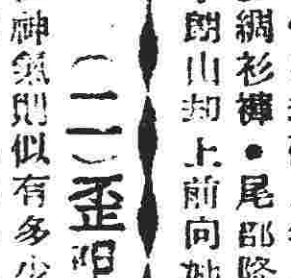 綢衫褲●尾部隆
朗山却上前向她
（二）歪陽
神氣則似有多少